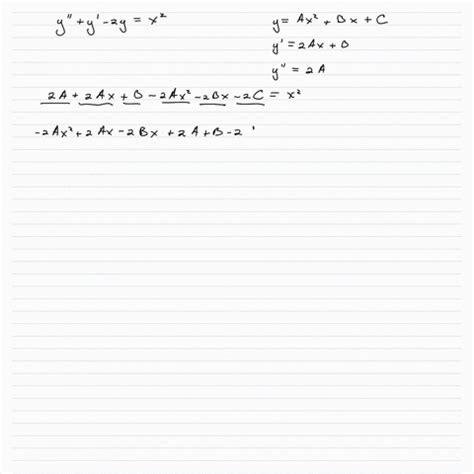 y" + y' - 2y = x²
y = Ax² + Bx + C
y' = 2Ax + B
y" = 2A
2A + 2Ax + B - 2Ax² - 2Bx - 2C = x²
-2Ax² + 2Ax - 2Bx + 2A + B - 2